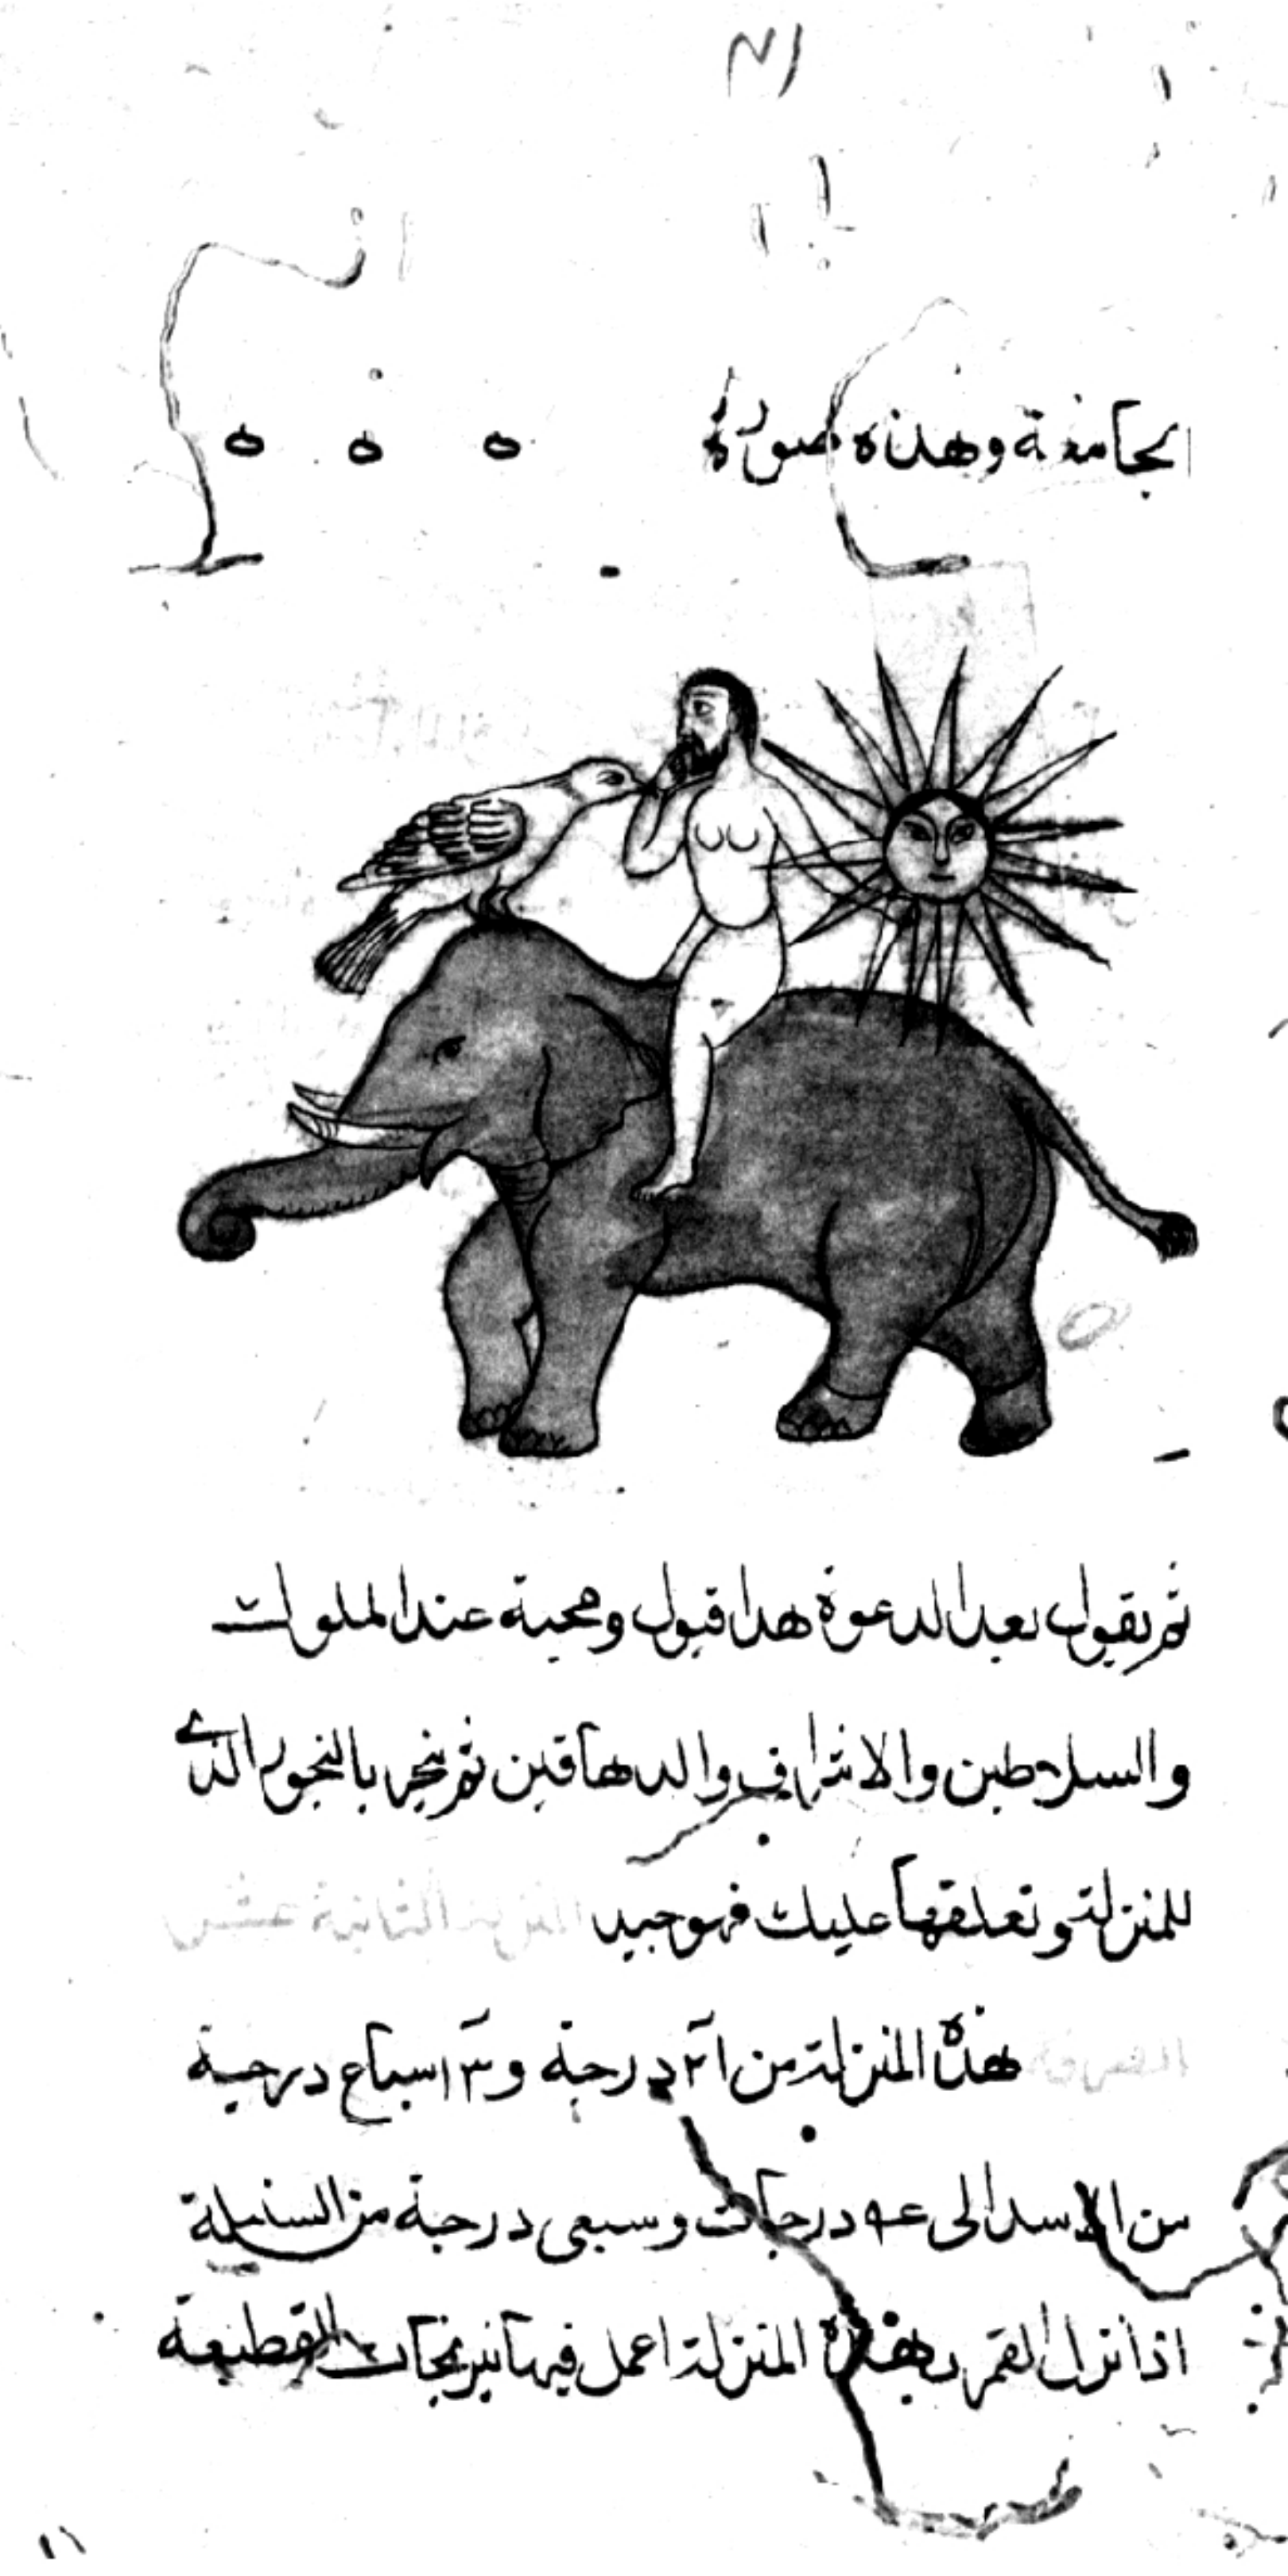 الجامعة وهذه صورة ه ه ه
ثم يقول بعد الدعوة هدا قبول ومحبة عند الملوك
والسلاطين والاشراف والدهاقين ثم تبخر بالبخور الذي
للمنزلة وتعلقها عليك فهو جيد المنزلة الثانية عشر
هذه المنزلة من ٢١ درجة و٣ اسباع درجة
من الاسد الى درجات وسبعى درجة من السنبلة
اذا نزل القمر بهذه المنزلة اعمل فيها نيرنجات القطيعة